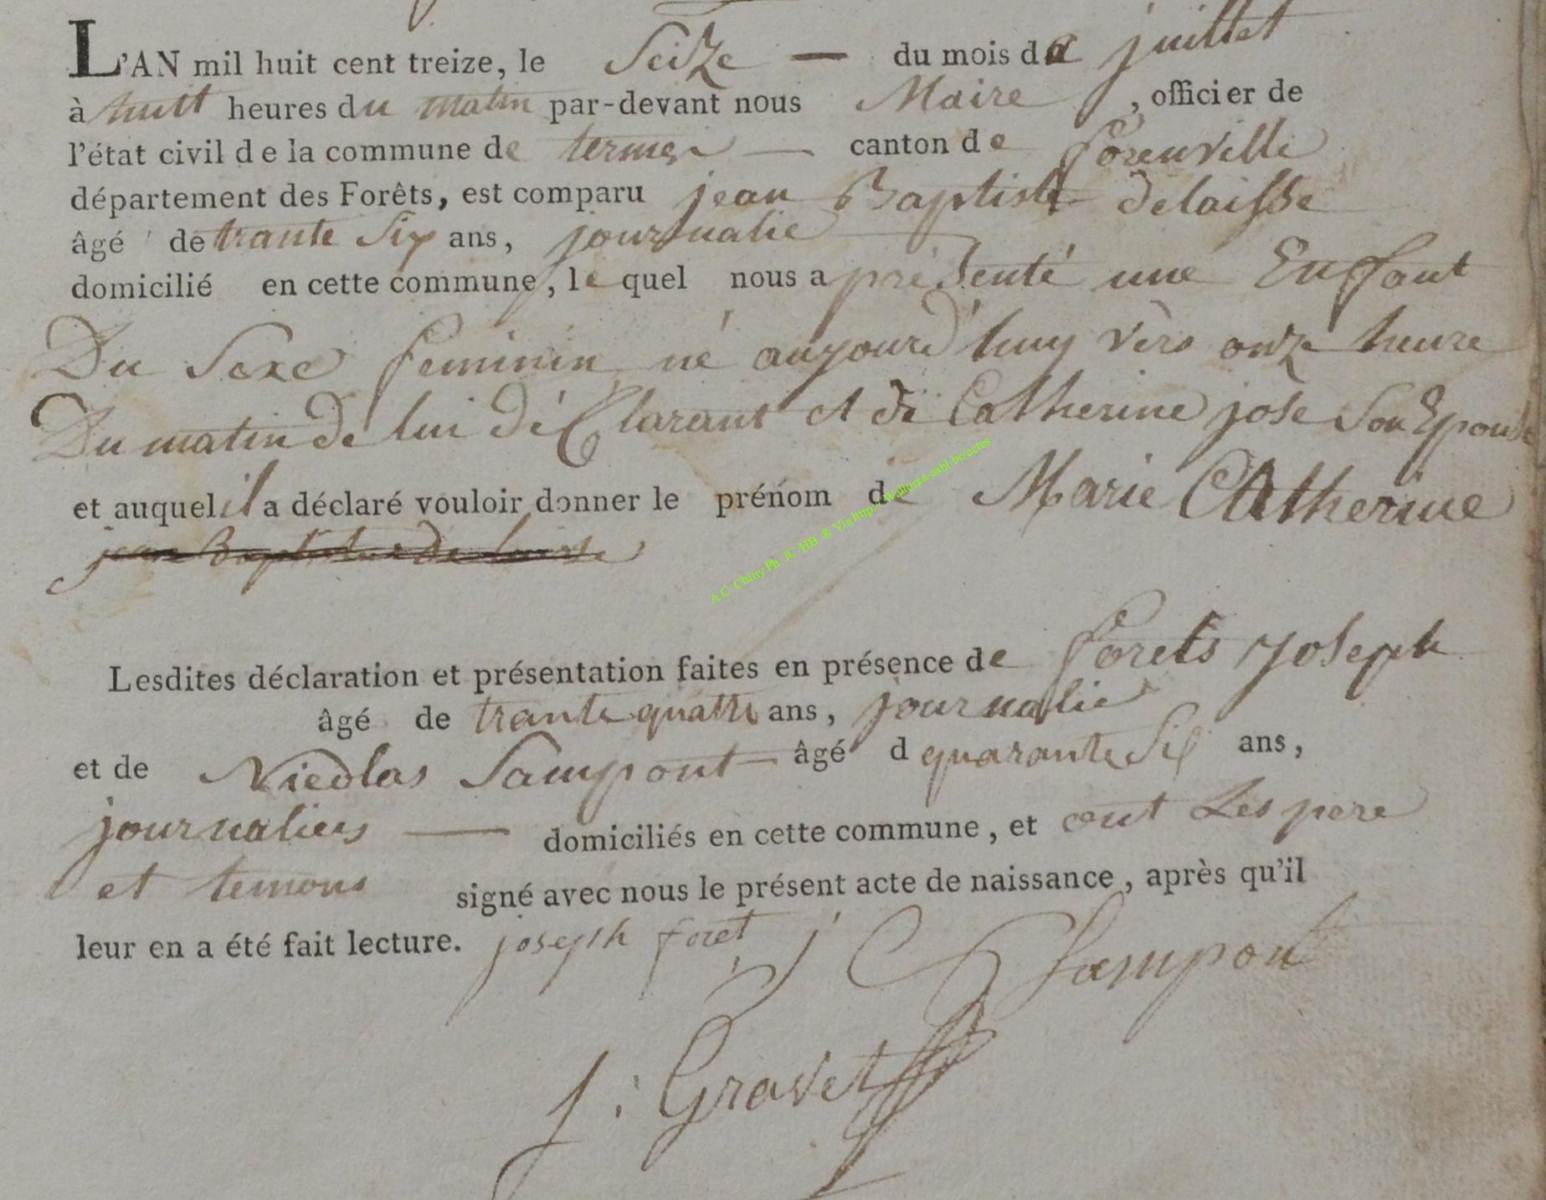 L'AN mil huit cent treize, le Seize — du mois de juillet
à huit heures du matin par-devant nous Maire, officier de
l'état civil de la commune de termes — canton de florenville
département des Forêts, est comparu jean Baptiste delaisse
âgé de trante Six ans, journalie
domicilié en cette commune, le quel nous a présenté une Enffant
Du Sexe feminin né aujourd'huy vers onze heure
Du matin de lui déClarant et de Catherine jose Son Epouse
et auquel il a déclaré vouloir donner le prénom de Marie CAtherine
Lesdites déclaration et présentation faites en présence de forets joseph
âgé de trante quattre ans, journalie
et de Nicolas Sampont âgé d quarante Six ans,
journaliers — domiciliés en cette commune, et ont Les pere
et temons signé avec nous le présent acte de naissance, après qu'il
leur en a été fait lecture. joseph foret Sampont
j : Gravet